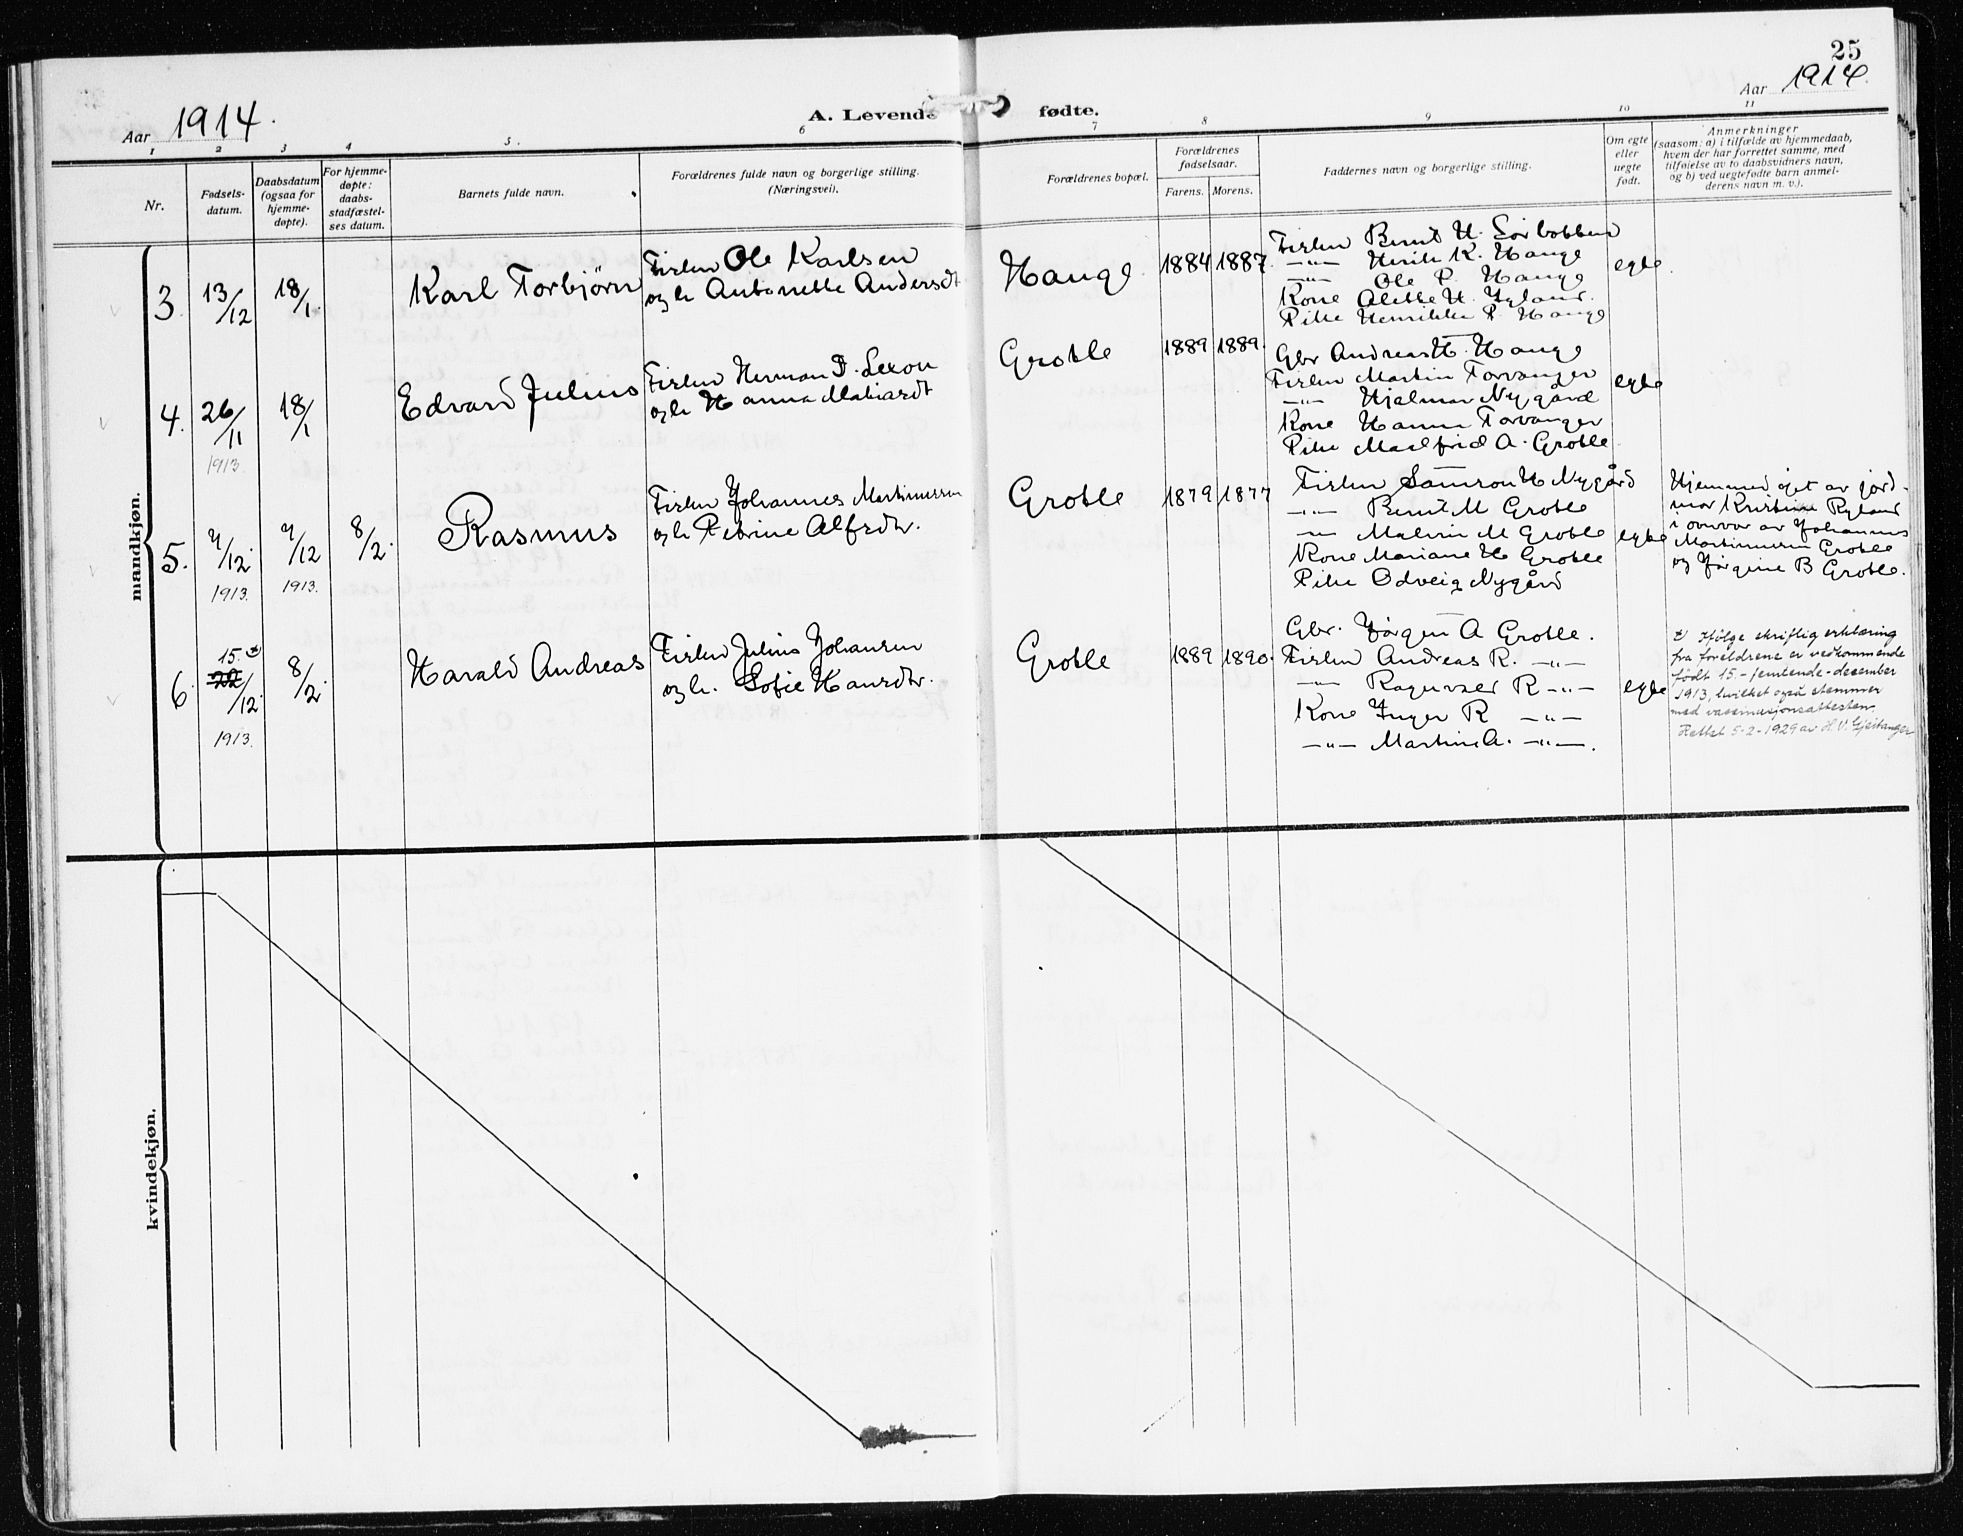 25
Aar 1914.
A. Levende fødte.
Aar 1914.
1 2 3 4 5. 6 7 8 9 10 11
Nr.
Fødsels-
datum.
Daabsdatum
(ogsaa for
hjemme-
døpte).
For hjemme-
døpte:
daabs-
stadfæstel-
ses datum.
Barnets fulde navn.
Forældrenes fulde navn og borgerlige stilling.
(Næringsvei).
Forældrenes bopæl.
Forældrenes
fødselsaar.
Farens. Morens.
Faddernes navn og borgerlige stilling.
Om egte
eller
uegte
født.
Anmerkninger
(saasom: a) i tilfælde av hjemmedaab,
hvem der har forrettet samme, med
tilføielse av to daabsvidners navn,
og b) ved uegtefødte barn anmel-
derens navn m. v.).
mandkjøn.
3. 13/12 18/1. Karl Torbjørn
Fisker Ole Karlsen
og h. Antonette Andersdt
Hauge 1884 1887.
Fisker Bernt H. Sørbotten
-"- Henrik K. Hauge
-"- Ole P. Hauge
Kone Alette H. Ryland.
Pike Henrikke P. Hauge
egte.
4. 26/11 1913. 18/1 Edvard Julius
Fisker Herman D. Sexon
og h. Hanna
Grotle 1889 1889.
Gbr Andreas H. Hauge
Fisker Martin Torvanger
-"- Hjalmar Nygård
Kone Hanna Torvanger
Pike Maalfrid A. Grotle.
egte
5. 7/12. 1913. 7/12 1913. 8/2. Rasmus
Fisker Johannes Martinussen
og h. Petrine Alfsdtr.
Grotle 1879 1877
Fisker Samson H Nygård
-"- Bernt M Grotle
-"- Malvin M Grotle
Kone Mariane H Grotle
Pike Odveig Nygård
egte
Hjemmedøpt av jord-
mor Kristine Ryland
i overvær av Johannes
Martinussen Grotle
og Jørgine B Grotle.
6. 15. ± 22/12. 1913. 8/2. Harald Andreas
Fisker Julius Johansen
og h. Sofie Hansdtr.
Grotle 1889 1890.
Gbr. Jørgen A Grotle.
Fisker Andreas R. -"-
-"- Ragnvald R -"-
Kone Inger R -"-
-"- Martine A. -"-.
egte
± Ifølge skriftlig erklæring
fra foreldrene er vedkommende
født 15.- femtende - desember
1913, hvilket også stemmer
med vaksinasjonsattesten.
Rettet 5-2-1929 av H. V. Gjeitanger
kvindekjøn.